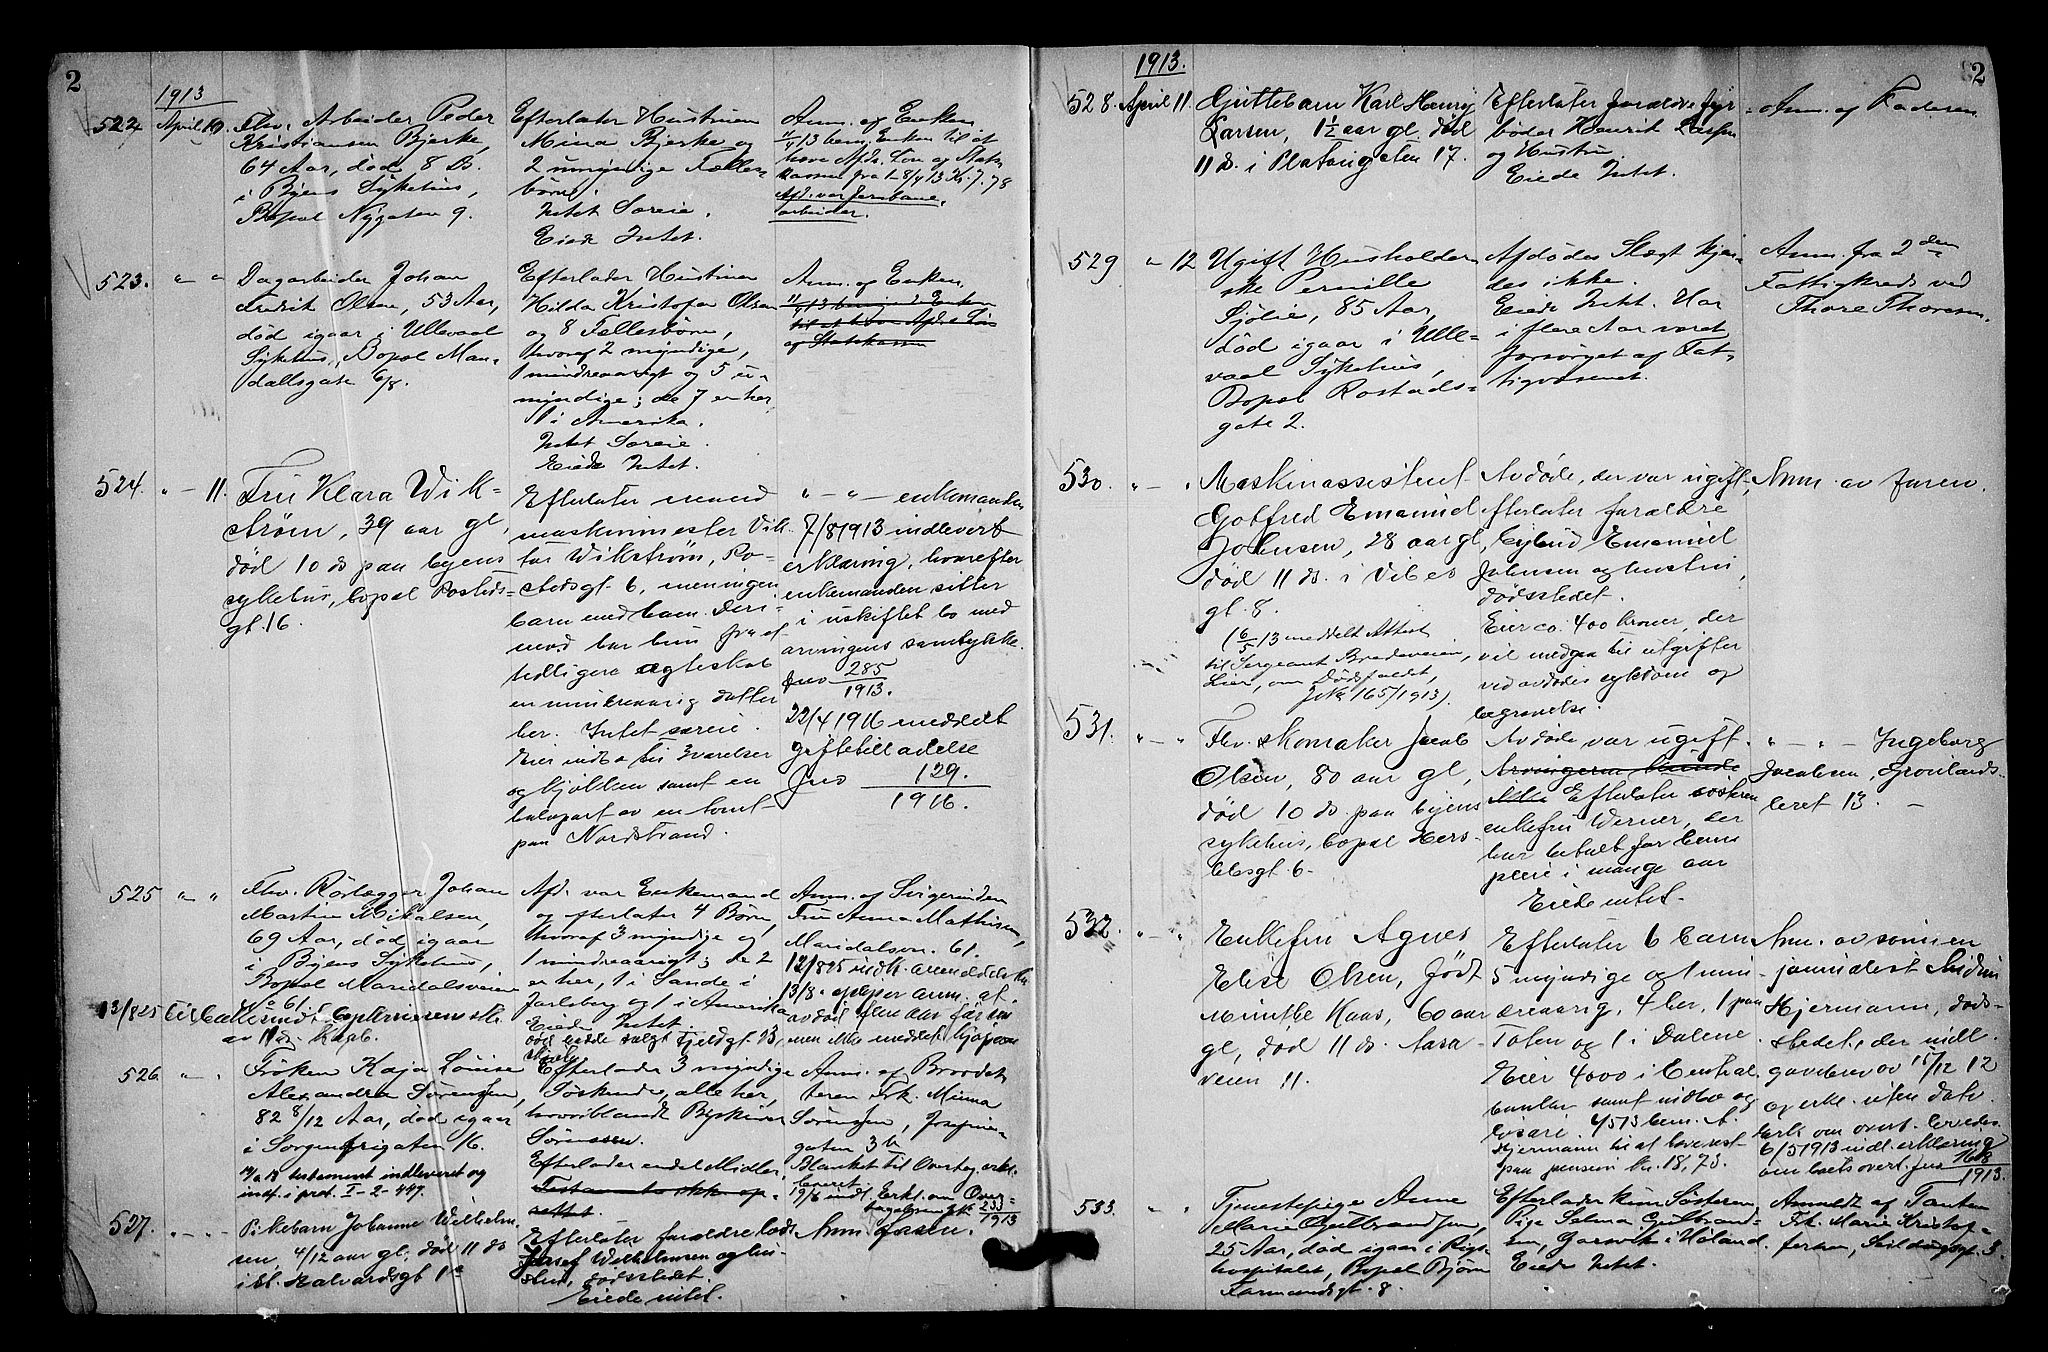 2
1913
522 April 10. Fhv. Arbeider Peder
Kristiansen Bjerke,
64 Aar, død 8 ds.
i Byens Sykehus,
Bopæl Nygaten 9.
Efterlater Hustruen
Mina Bjerke og
2 umyndige Fælles-
børn.
Intet Særeie.
Eiede Intet.
Anm. af Enken.
11/4 13 bem. Enken til at
hæve Afdr. Løn og Stats-
kassen fra 1-8/4 13 Kr. 7.78
Afd. var Jernbane-
arbeider.
523. " - " Dagarbeider Johan
Fredrik Olsen, 53 Aar,
død igaar i Ullevaal
Sykehus, Bopæl Man-
dallsgate 6/8.
Efterlader Hustruen
Hilda Kristofa Olsen
og 8 Fællesbørn,
hvoraf 2 myndige,
1 mindreaarigt og 5 u-
myndige; de 7 er her,
1 i Amerika.
Intet Særeie.
Eiede Intet.
Anm. af Enken.
11/4 13 Enken
til at hæve Afdr. Løn
og Statskassen
524. " - 11. Fru Klara Wik-
strøm, 39 aar gl,
død 10 ds paa byens
sykehus, bopæl Rosteds-
gt. 16.
Efterlater mand
maskinmester Vik-
tor Wikstrøm, Ro-
stedsgt. 6, men ingen
barn med ham. Deri-
mod har hun fra et
tidligere ægteskab
en mindreaarig datter
her. Intet særeie.
Eier indbo til 3 værelser
og kjøkken samt en
halvpart av en tomt
paa Nordstrand.
" - " - enkemanden
7/8 1913 indlevert
erklæring, hvorefter
enkemanden sitter
i uskiftet bo med
arvingens samtykke.
Jno 285/1913.
22/4 1916 meddelt
giftetilladelse
Jno 129./1916.
525 " - " Fhv. Rørlægger Johan
Martin Mikalsen,
69 Aar, død igaar
i Byens Sykehus,
Bopæl Maridalsveien
61.
Afd. var Enkemand
og efterlater 4 Børn,
hvoraf 3 myndige og
1 mindreaarigt; de 2
er her, 1 i Sande i
Jarlsberg og 1 i Amerika
Eiede Intet.
Anm. af Svigerinden
Fru Anna Mathisen,
Maridalsvn. 61.
526 " - " Frøken Kaja Louise
Alexandra Sørenssen,
82 8/12 Aar, død igaar
i Sorgenfrigaten 16.
testament indleveret og
indf. i prot. I-2-447.
Efterlader 3 myndige
Søskende, alle her,
hvoriblandt
Sørenssen.
Efterlader endel Midler,
Testamente ikke op-
rettet.
Anm. af Broderdat-
teren Frk. Minna
Sørenssen, Josefine-
gaten 3 b
Blanket til Overtag. erkl.
leveret
19/6 indl. Erkl. om Over-
tagelsen Jno 233/1913
527. " - " Pikebarn Johanne Wilhelm-
sen, 4/12 aar gl, død 11 ds
i St. Halvardsgt 1a
Efterlater forældre
Josef Wilhelmsen og hu-
stru, dødsstedet.
Eiede intet.
Anm. faren.
1913.
2
528. April 11. Guttebarn Karl Henry
Larsen, 1½ aar gl. død
11 ds. i Platougaten 17.
Efterlater forældre fyr-
bøder Henrik Larsen
og Hustru.
Eiede Intet.
Anm. af Faderen.
529 " 12 Ugift Husholder-
ske Pernille
Sjølie, 85 Aar,
død igaar i Ulle-
vaal Sykehus,
Bopæl Rostads-
gate 2.
Afdødes Slægt kjen-
des ikke.
Eiede Intet. Har
i flere Aar været
forsørget af Fat-
tigvæsenet.
Anm. fra 2den
Fattigkreds ved
Thore Thoresen.
530 " - " Maskinassistent
Gotfred Emanuel
Johnsen, 28 aar gl,
død 11 ds. i Vibes
gt. 8.
(6/5 13 meddelt Attest
til Sergeant Bradeveien,
Lier, om Dødsfaldet,
Jok 165/1913).
Avdøde, der var ugift,
efterlater forældre
bybud Emanuel
Johnsen og hustru,
dødsstedet.
Eier ca. 400 kroner, der
vil medgaa til utgifter
ved avdødes sykdom og
begravelse.
Anm. av faren.
531. " - " Fhv. skomaker Jacob
Olsen, 80 aar gl,
død 10 ds. paa byens
sykehus, bopæl Hers-
lebsgt 6.
Avdøde var ugift.
Arvingerne kunde
ikke Efterlater søsteren
enkefru Werner, der
har betalt for hans
pleie i mange aar
Eiede intet.
" - " - Ingeborg
Jacobsen, Grønlands-
leret 13.
532. " - " Enkefru Agnes
Elise Olsen, født
Minthe Kaas, 60 aar
gl, død 11 ds. Aasa-
veien 11.
Efterlater 6 barn
5 myndige og 1 min-
dreaarig, 4 her, 1 paa
Toten og 1 i Dalene.
Eier 4000 i Central-
banken samt indbo og
løsøre 4/5 13 bem. A.
Hjermann til at hæve rest
paa pension kr. 18,73.
Anm. av sønnen
journalist
Hjermann, døds-
stedet, der indl.
gavebrev av 15/12 12
og erkl. uten dato.
Erkl. om overt. levedes
6/5 1913 indl. erklæring
om boets overt. Jno 168/1913.
533. " " Tjenestepige Anne
Marie Gulbrandsen,
25 Aar, død igaar i Rigs-
hospitalet, Bopæl Bjørn
Farmandsgt. 8.
Efterlader kun Søsteren
Pige Selma Gulbrand-
sen, i Høland.
Eiede Intet.
Anmeldt af Tanten
Frk. Marie Kristof-
fersen, Schildrupsgt. 3.